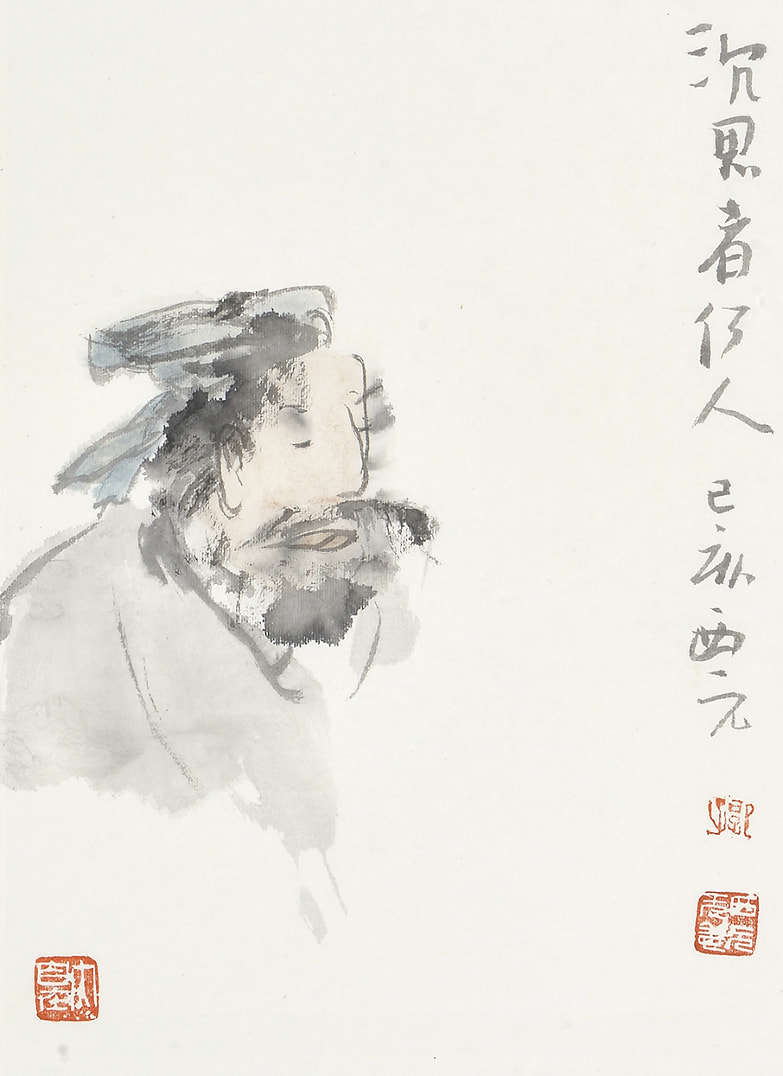 沉思者何人 己亥西元